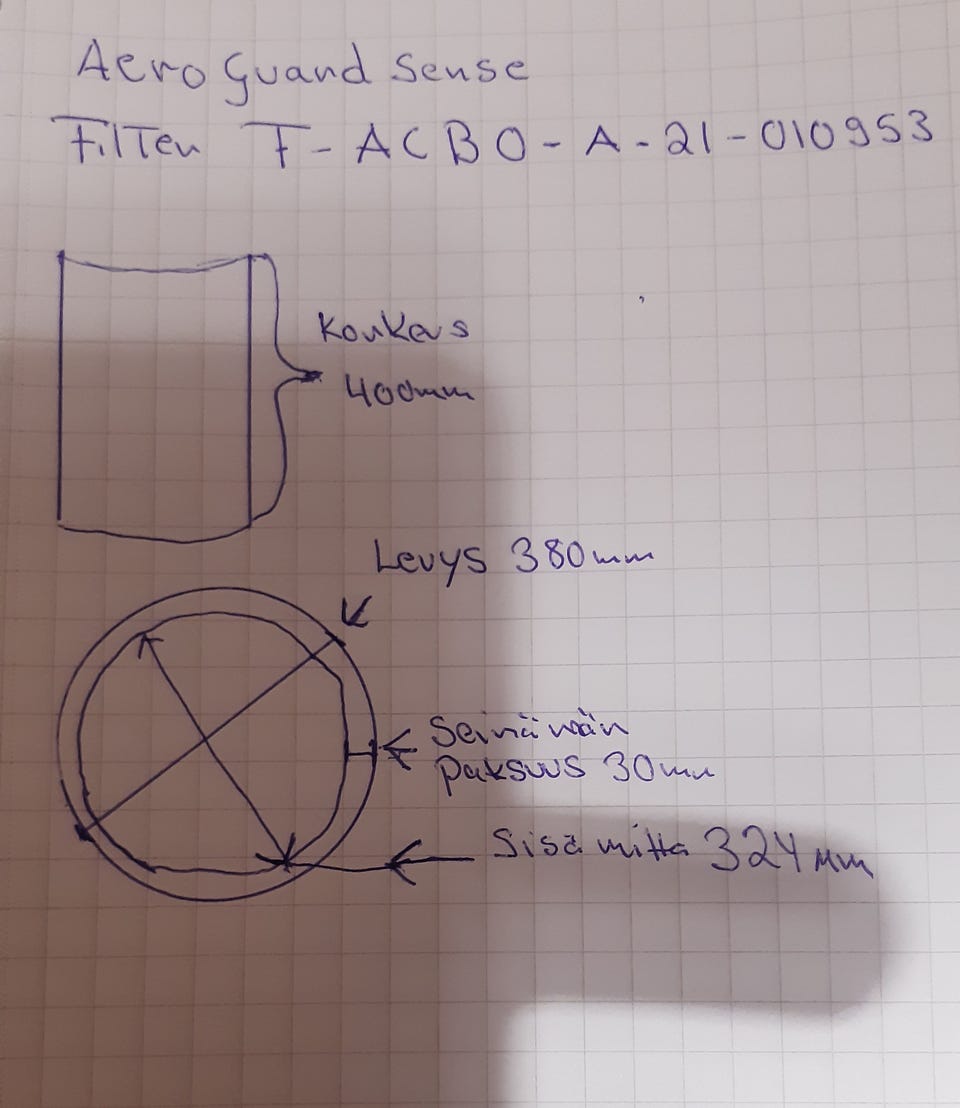 Aero guard sense
Filter F-ACBO-A-21-010953
Korkeus
400mm
Levys 380mm
Seinämän
paksuus 30mm
Sisä mitta 324mm